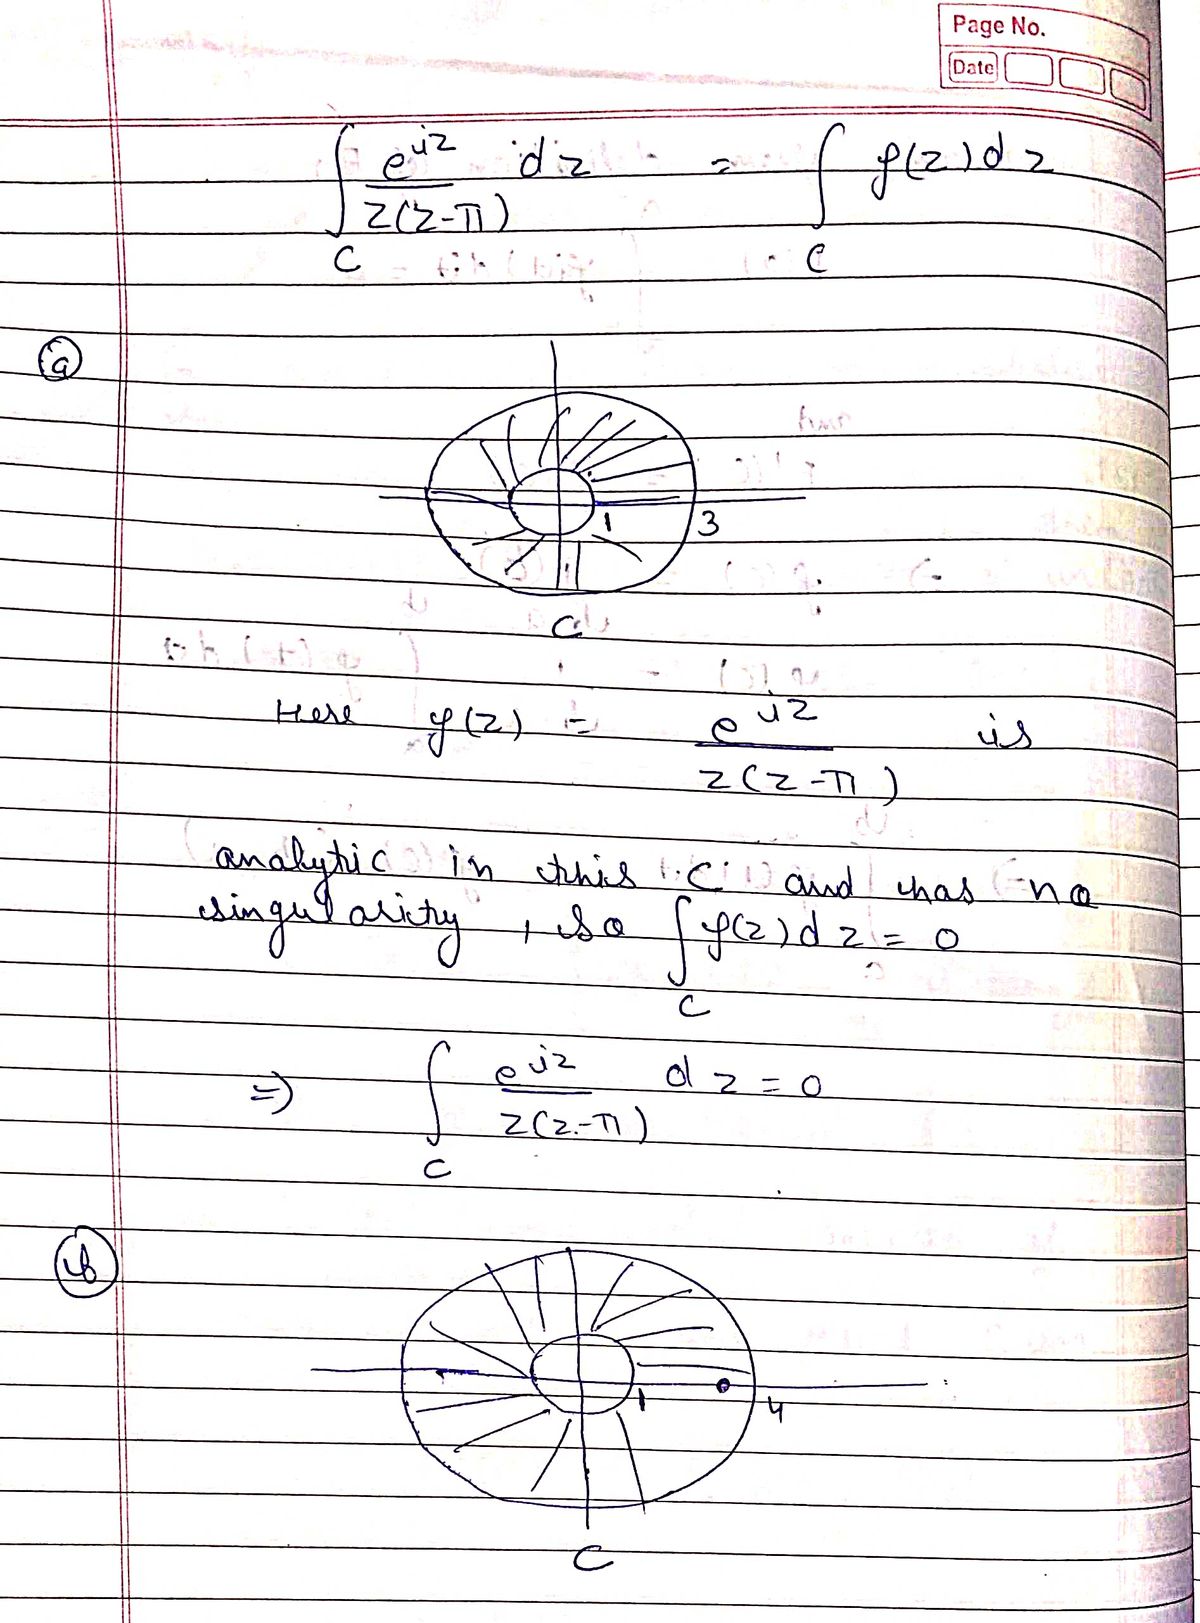 Page No.
Date
∫_C e^{iz} / z(z-π) dz = ∫_C f(z) dz
(a)
1 3
C
Here f(z) = e^{iz} / z(z-π) is
analytic in this C and has no
singularity, so ∫_C f(z) dz = 0
=) ∫_C e^{iz} / z(z-π) dz = 0
(b)
1 4
C